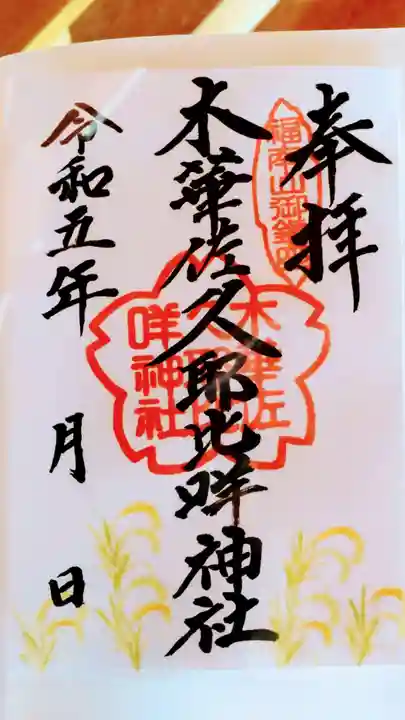 奉拝
福南山御
木華佐久耶比咩神社
木華佐
久耶比
咩神社
令和五年 月 日